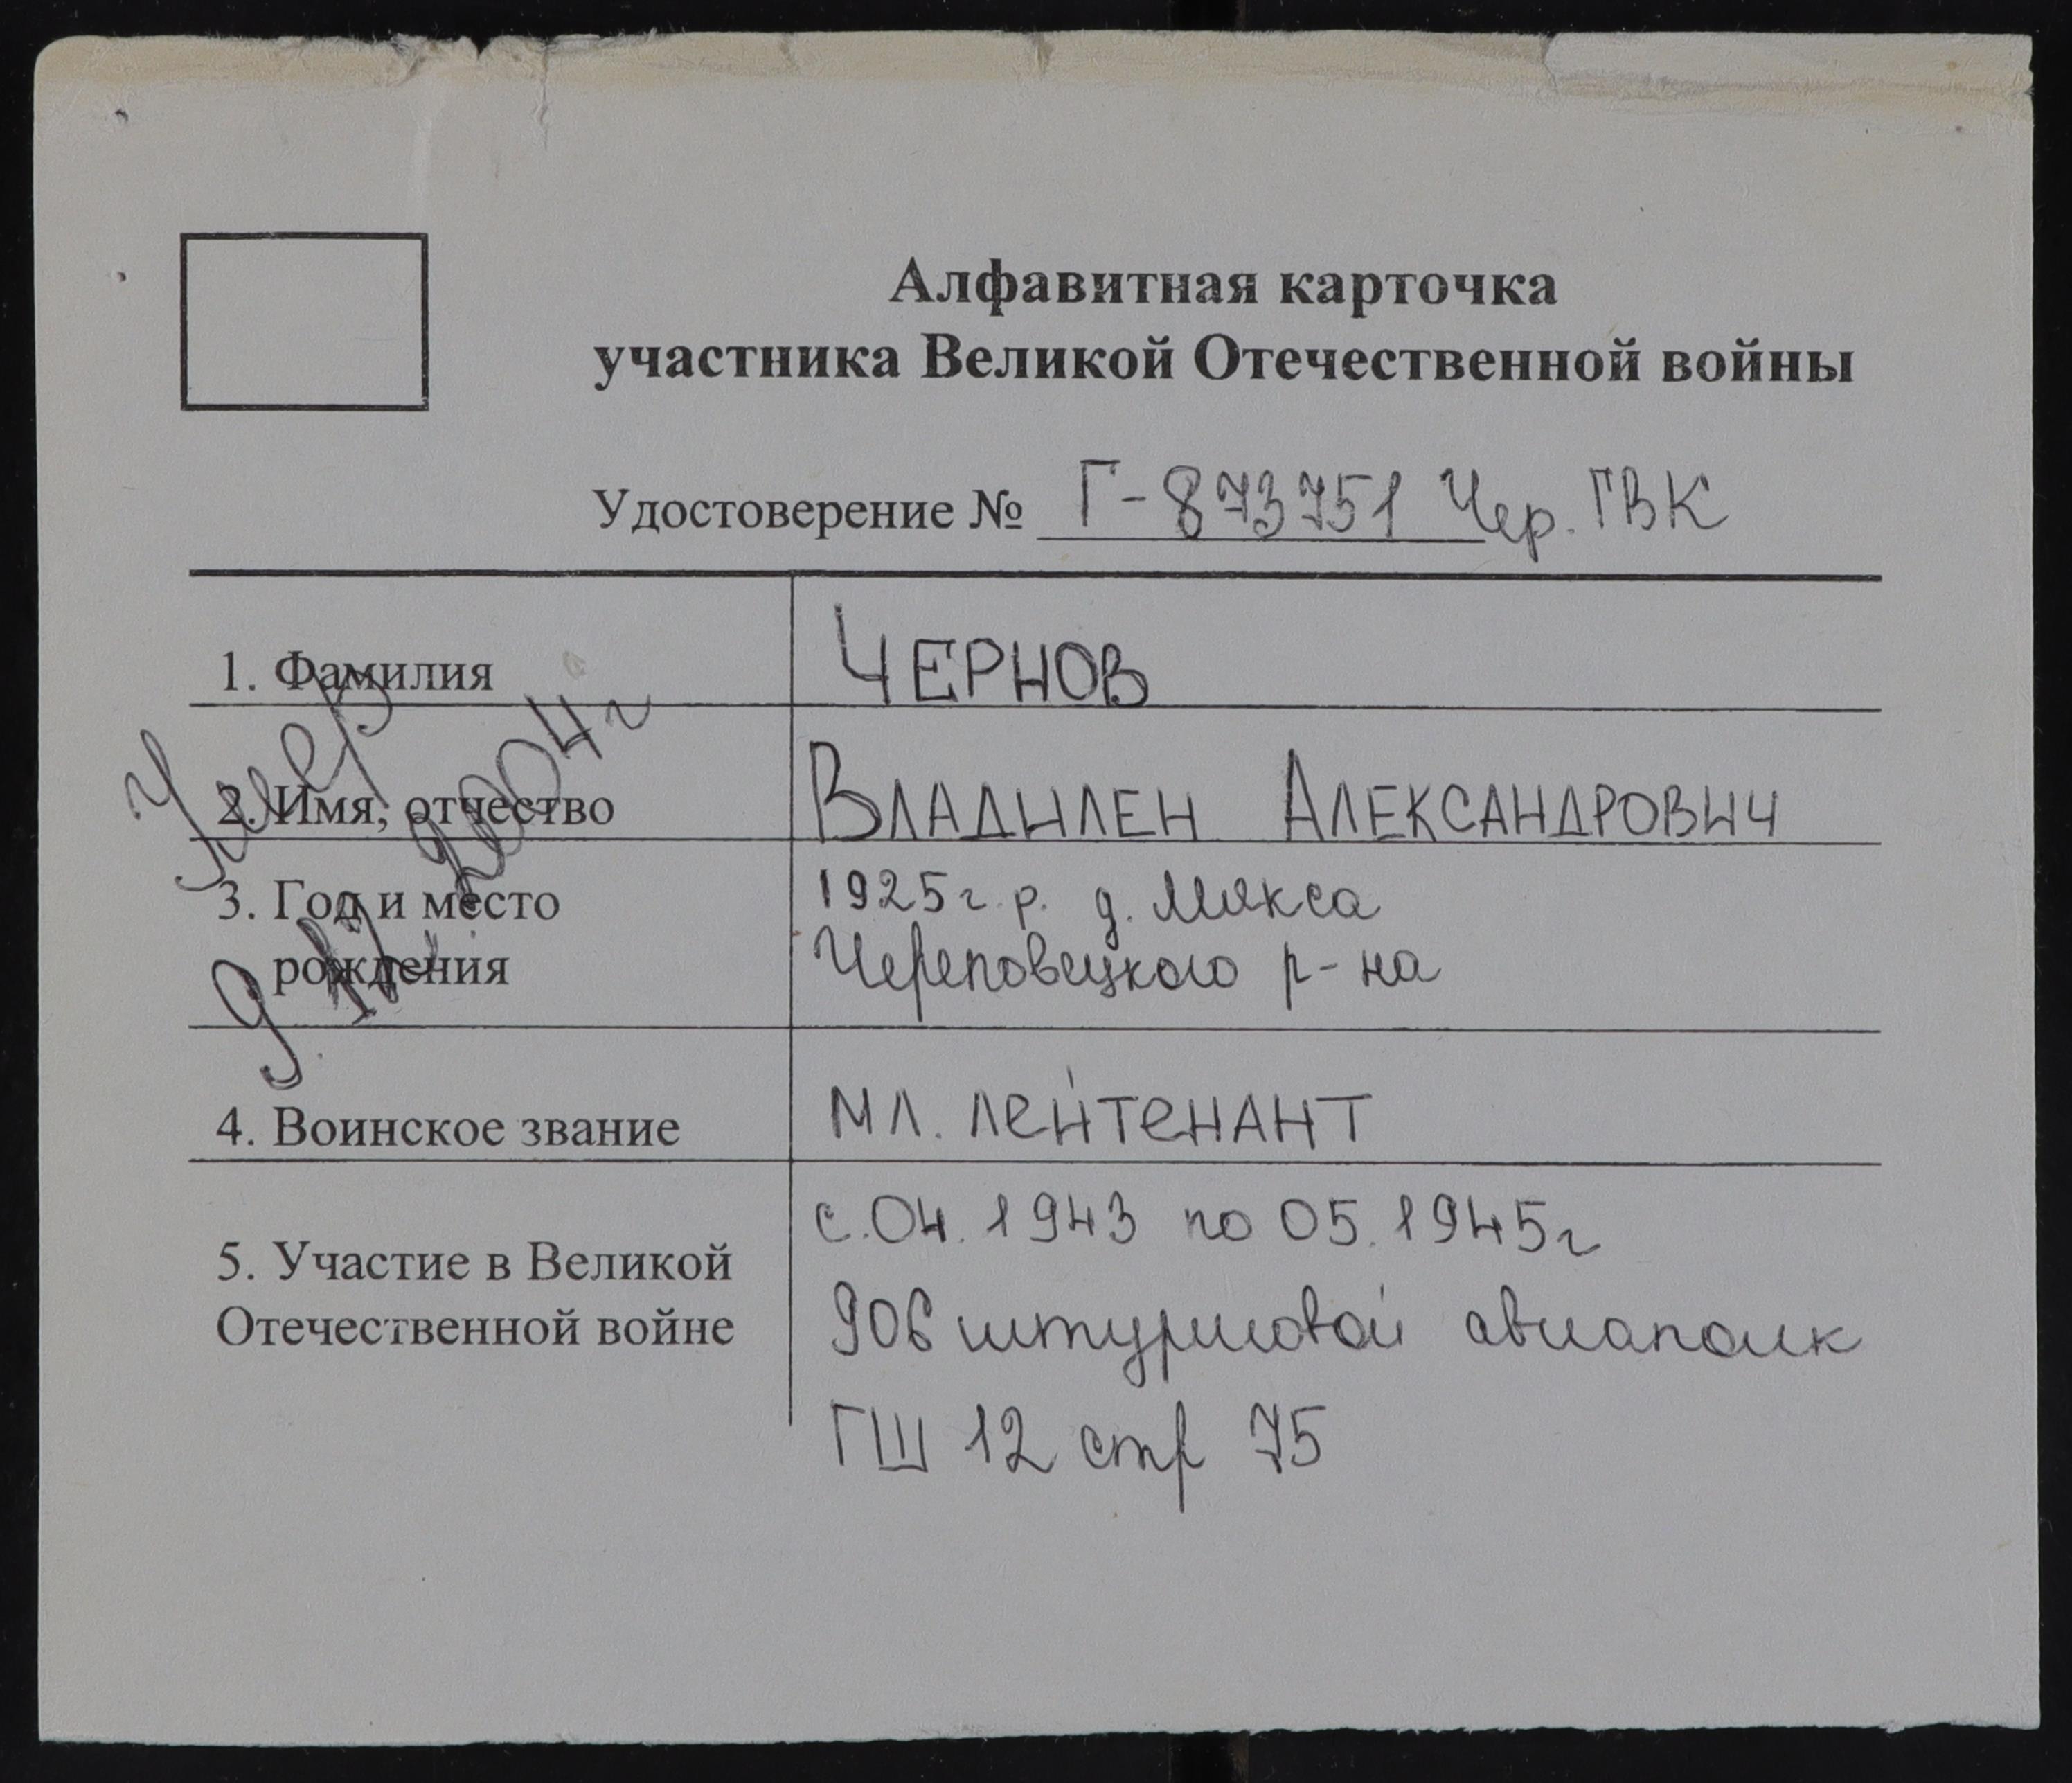 Алфавитная карточка
участника Великой Отечественной войны
Удостоверение № Г-873751 Чер. ГВК
1. Фамилия ЧЕРНОВ
2. Имя, отчество ВЛАДИЛЕН АЛЕКСАНДРОВИЧ
3. Год и место 1925г.р. д. Мякса
рождения Череповецкого р-на
4. Воинское звание мл. лейтенант
5. Участие в Великой
Отечественной войне
с.04.1943 по 05.1945г
906 штурмовой авиаполк
ГШ 12 стр 75
Умер
2004г